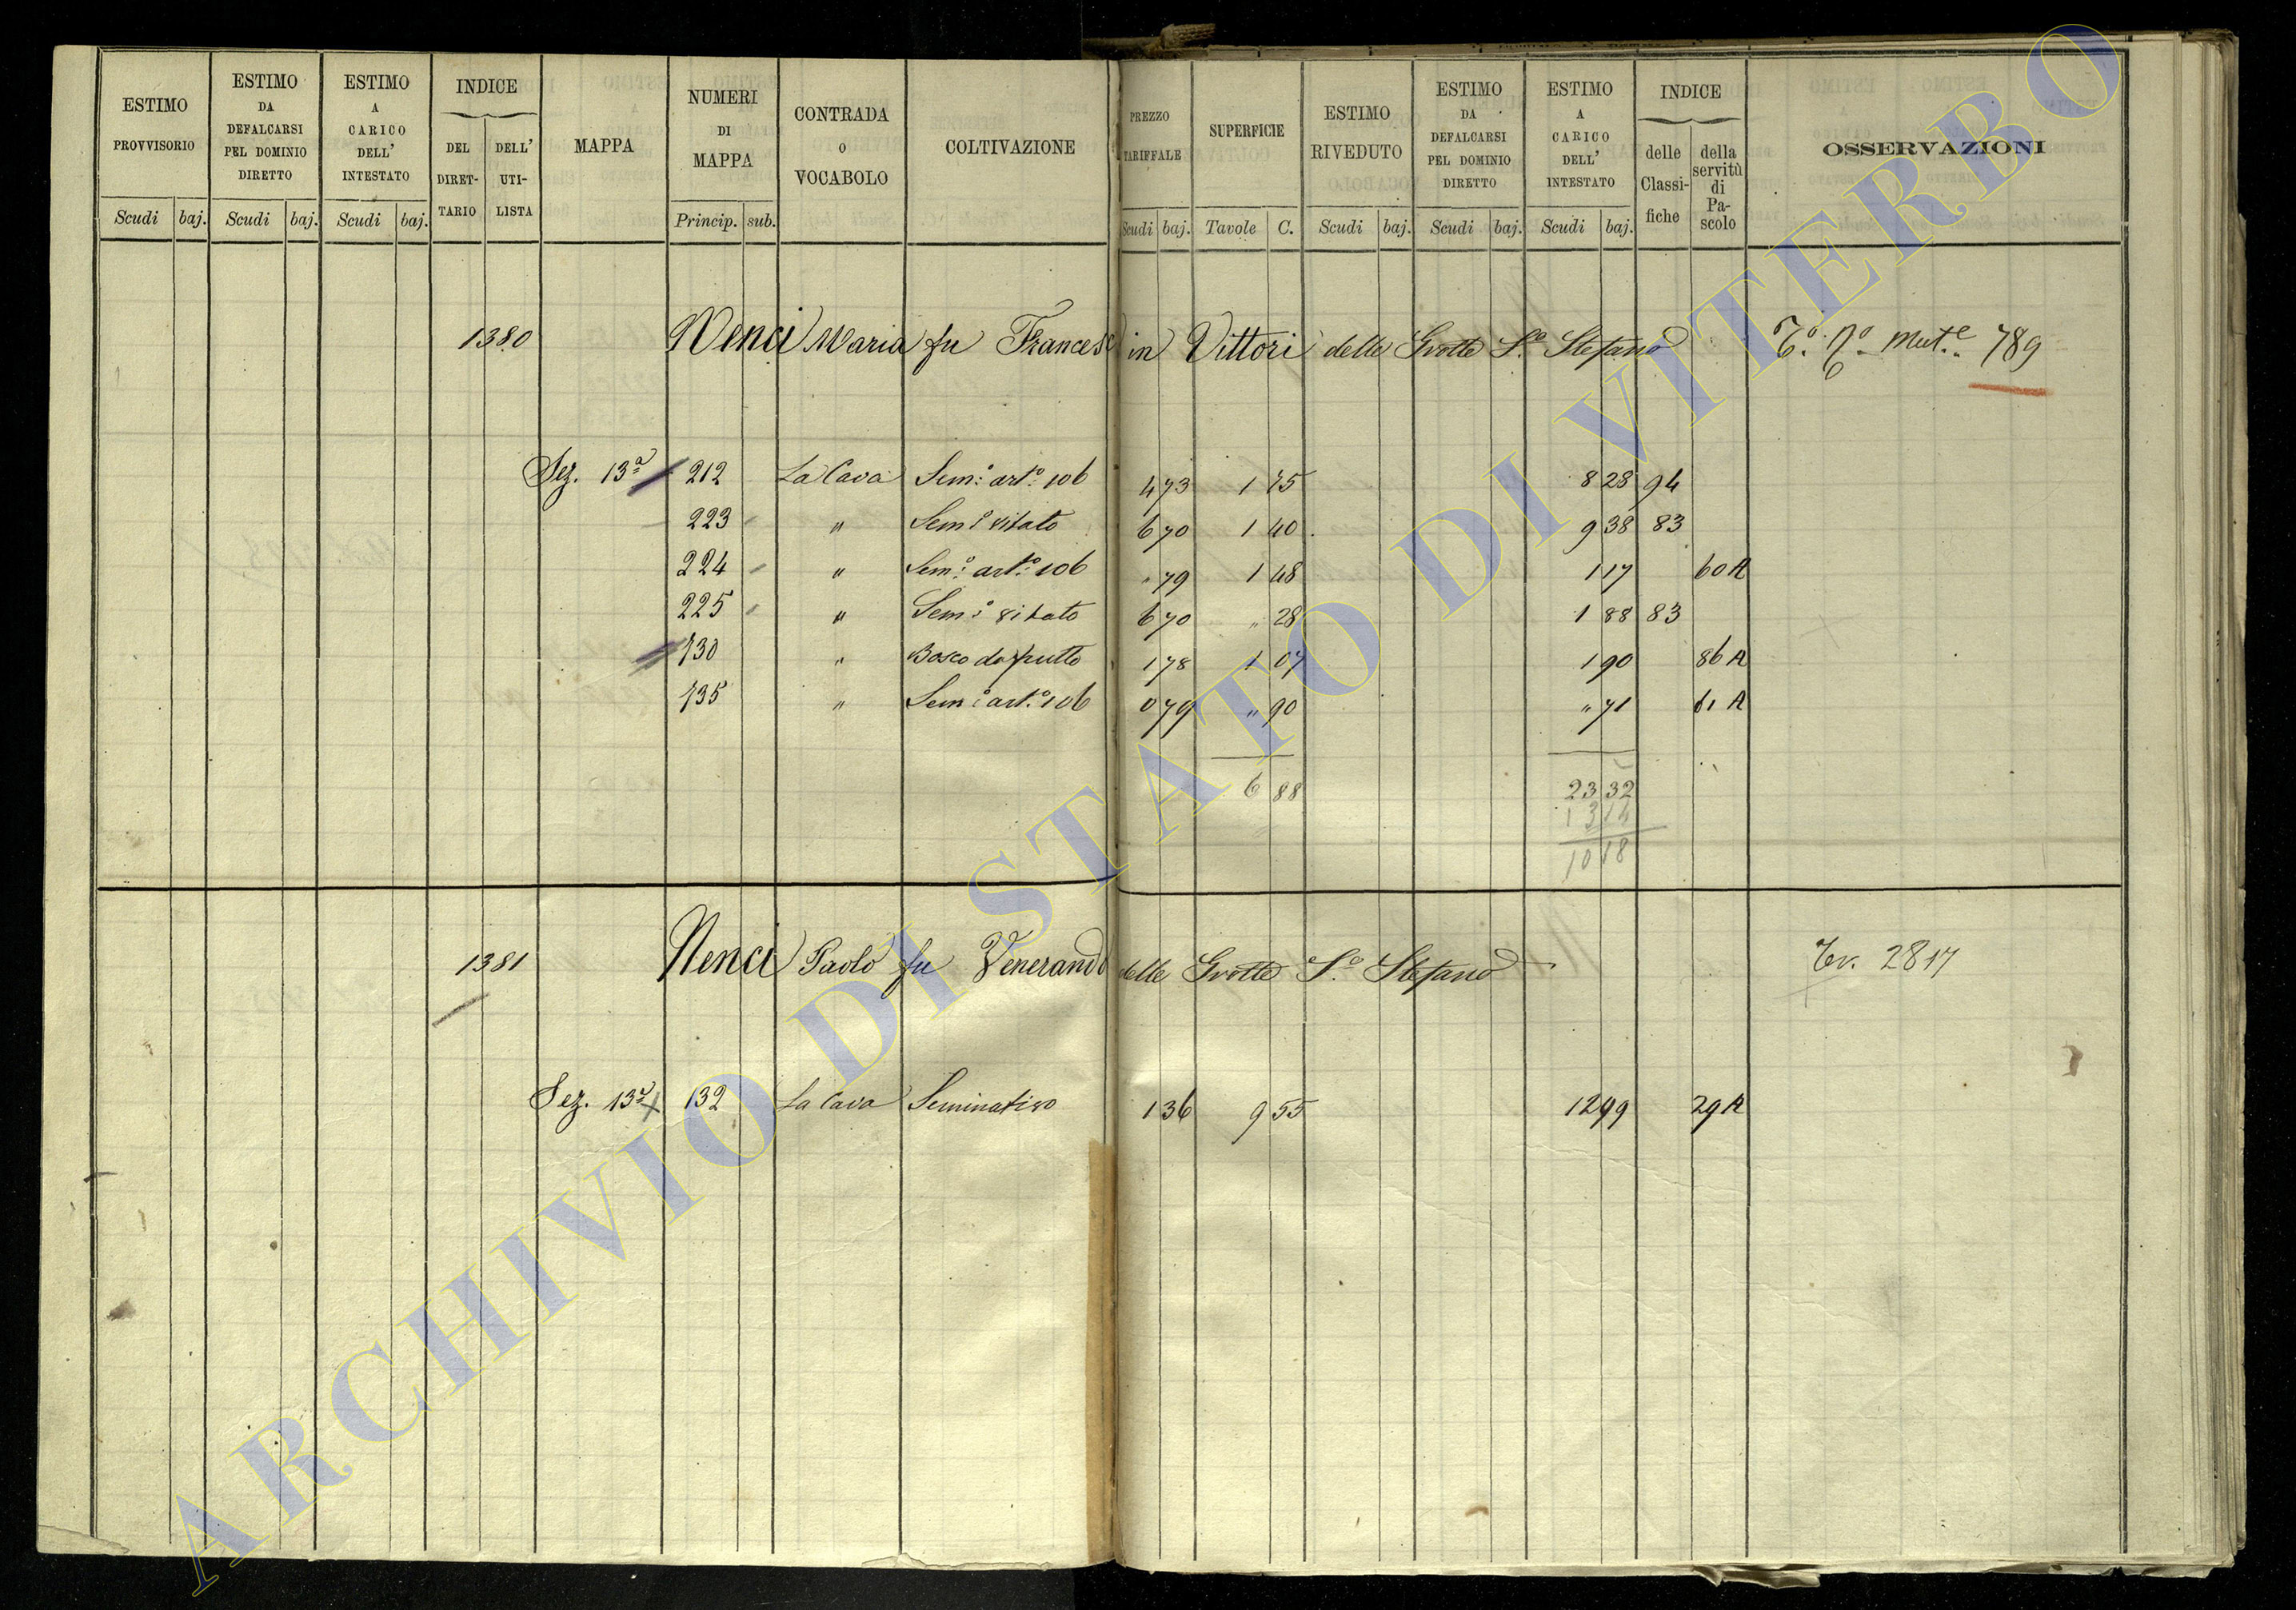 ESTIMO PROVVISORIO
ESTIMO DA DEFALCARSI PEL DOMINIO DIRETTO
ESTIMO A CARICO DELL' INTESTATO
INDICE
DEL DIRET-TARIO
DELL' UTI-LISTA
MAPPA
NUMERI DI MAPPA
CONTRADA O VOCABOLO
COLTIVAZIONE
PREZZO TARIFFALE
SUPERFICIE
ESTIMO RIVEDUTO
ESTIMO DA DEFALCARSI PEL DOMINIO DIRETTO
ESTIMO A CARICO DELL' INTESTATO
INDICE
delle Classi-fiche
della servitù di Pa-scolo
OSSERVAZIONI
Scudi baj. Scudi baj. Scudi baj. Princip. sub. Scudi baj. Tavole C. Scudi baj. Scudi baj. Scudi baj.
1380 Nenci Maria fu Francesc in Vittori delle Grotte S.o Stefano 789
Sez. 13a 212 La Cava Sem:o art:o 106 4 73 1 75 8 28 94
223 " Sem:o vitato 6 70 1 40 9 38 83
224 " Sem:o art:o 106 " 79 1 48 1 17 60 A
225 " Sem:o vitato 6 70 " 28 1 88 83
730 " Bosco da frutto 1 78 1 07 1 90 86 A
735 " Sem:o art:o 106 0 79 " 90 " 71 61 A
6 88 23 32
13 14
10 18
1381 Nenci Paolo fu Venerando delle Grotte S.o Stefano 2817
Sez. 13a 132 La Cava Seminativo 1 36 9 55 12 99 29 A
ARCHIVIO DI STATO DI VITERBO